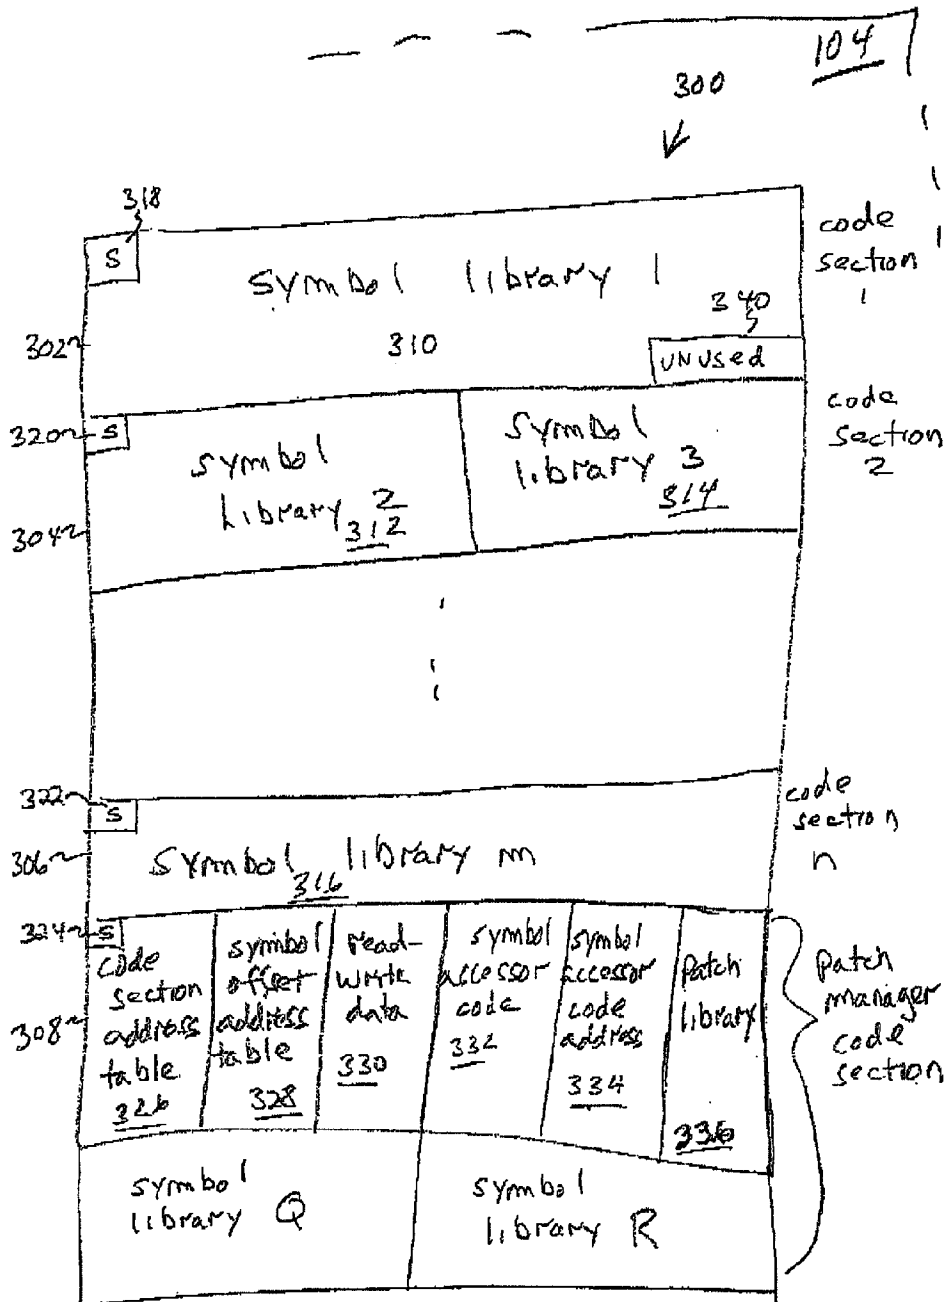 104
300
318
S
symbol library 1
code
section
1
340
302
310
UNUSED
320
S
symbol
library 2
312
symbol
library 3
314
code
section
2
304
322
S
code
section
n
306
symbol library m
316
324
S
code
section
address
table
326
symbol
offset
address
table
328
read-
write
data
330
symbol
accessor
code
332
symbol
accessor
code
address
334
patch
library
336
308
patch
manager
code
section
symbol
library Q
symbol
library R